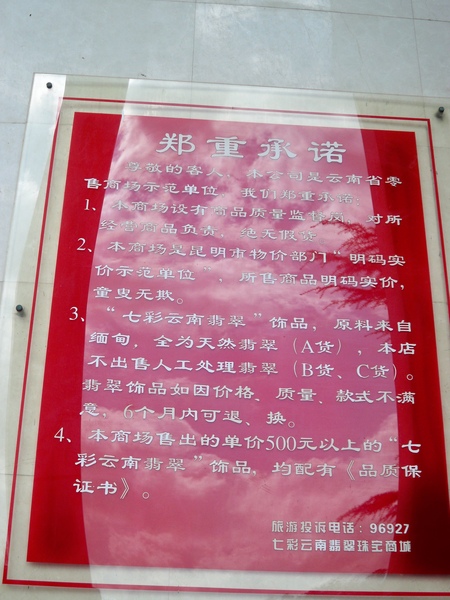 郑重承诺
尊敬的客人，本公司是云南省零
售商场示范单位，我们郑重承诺：
1、本商场设有商品质量监督岗，对所
经营商品负责，绝无假货。
2、本商场是昆明市物价部门“明码实
价示范单位”，所售商品明码实价，
童叟无欺。
3、“七彩云南翡翠”饰品，原料来自
缅甸，全为天然翡翠（A货），本店
不出售人工处理翡翠（B货、C货）。
翡翠饰品如因价格、质量、款式不满
意，6个月内可退、换。
4、本商场售出的单价500元以上的“七
彩云南翡翠”饰品，均配有《品质保
证书》。
旅游投诉电话：96927
七彩云南翡翠珠宝商城